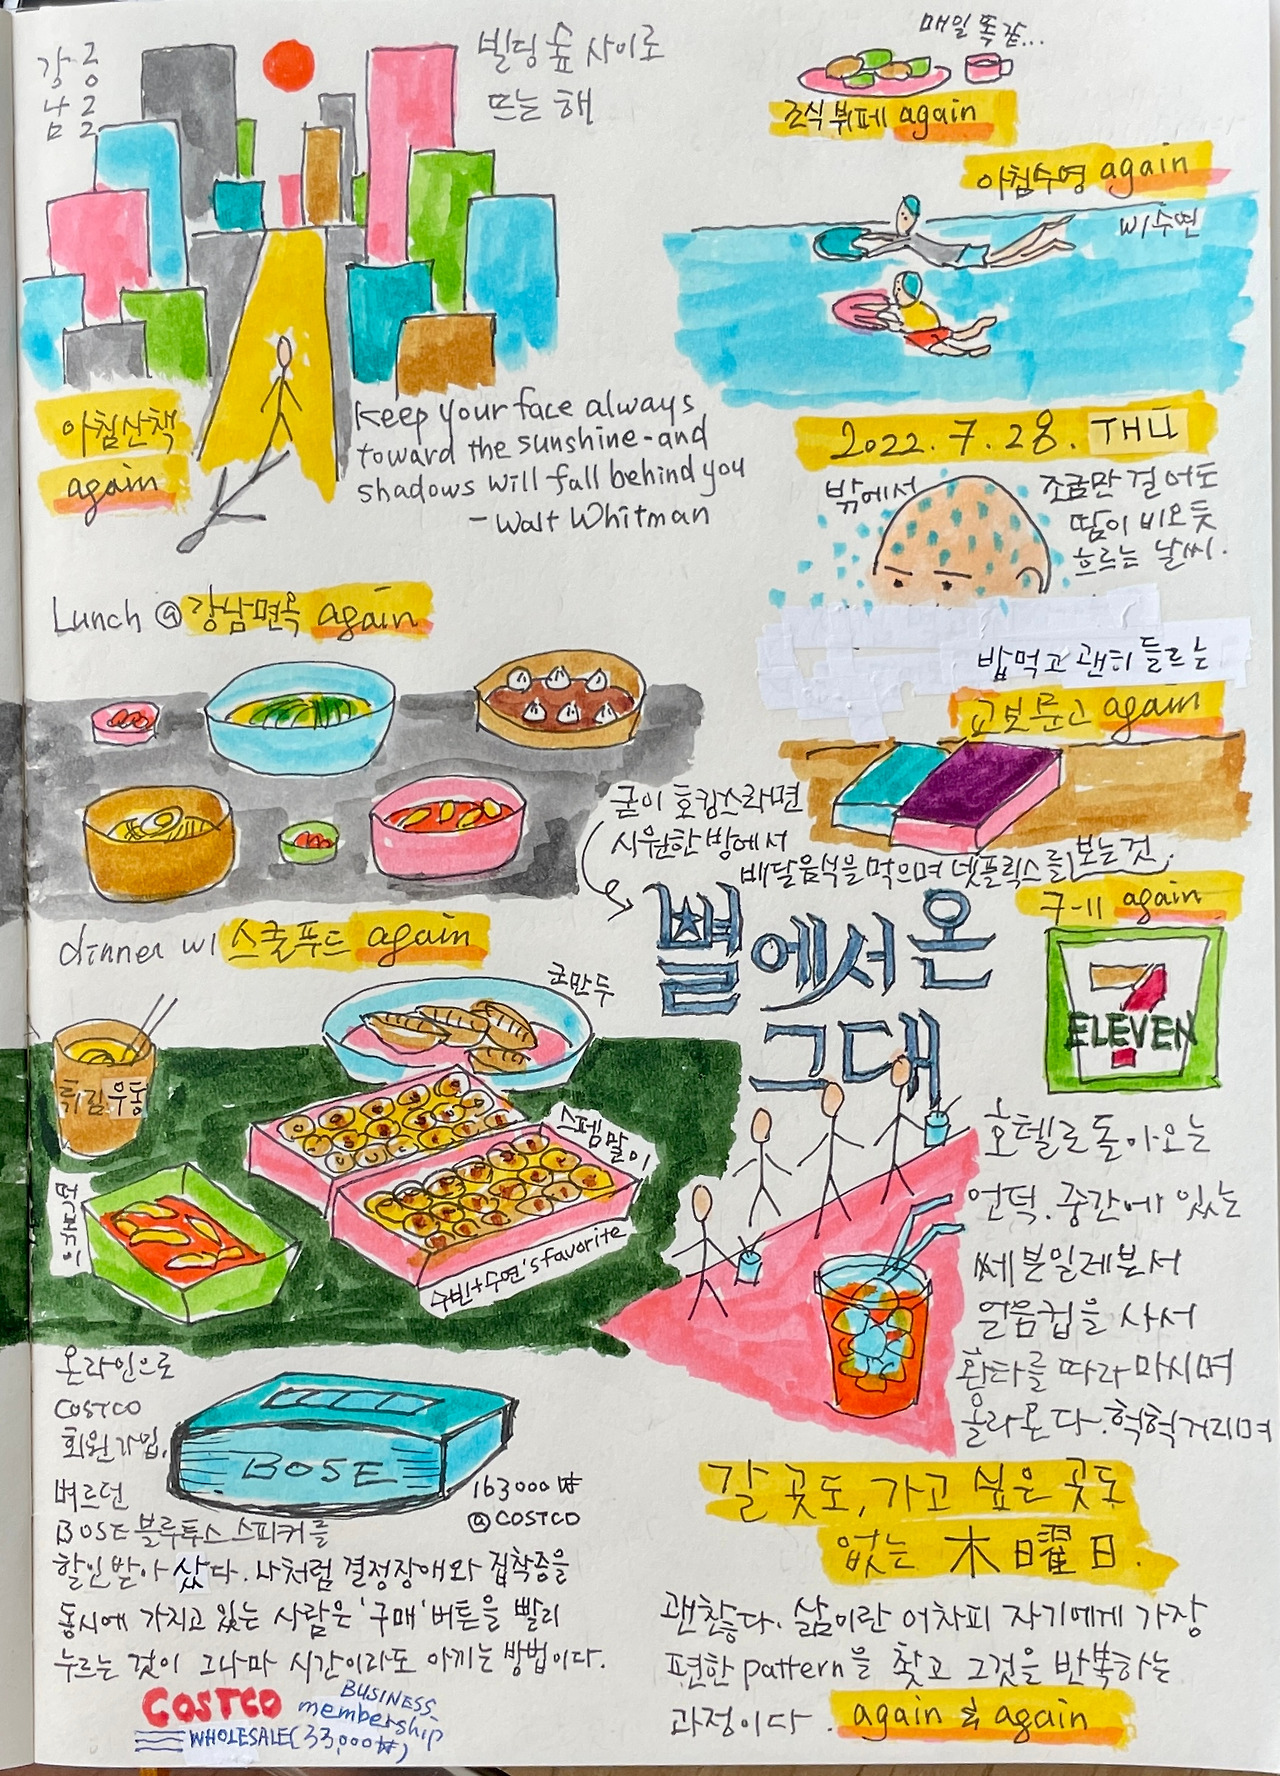 강남
2022
빌딩 숲 사이로
뜨는 해
아침산책
again
Keep your face always
toward the sunshine-and
shadows will fall behind you
- Walt Whitman
매일 똑같...
조식뷔페 again
아침수영 again
w/수연
2022. 7. 28. THU
밖에서
조금만 걸어도
땀이 비오듯
흐르는 날씨.
Lunch @ 강남면옥 again
밥먹고 괜히 들르는
교보문고 again
굳이 호캉스라면
시원한 방에서
배달음식을 먹으며 넷플릭스를 보는 것.
별에서 온
그대
7-11 again
7
ELEVEN
dinner w/ 스쿨푸드 again
군만두
튀김우동
스팸말이
떡볶이
수빈+수연's favorite
호텔로 돌아오는
언덕. 중간에 있는
쎄븐일레븐서
얼음컵을 사서
환타를 따라 마시며
올라온다. 헉헉거리며
온라인으로
COSTCO
회원가입,
벼르던
BOSE 블루투스 스피커를
할인받아 샀다. 나처럼 결정장애와 집착증을
동시에 가지고 있는 사람은 '구매' 버튼을 빨리
누르는 것이 그나마 시간이라도 아끼는 방법이다.
BOSE
163000₩
@COSTCO
COSTCO
WHOLESALE
BUSINESS
membership
(33,000₩)
갈 곳도, 가고 싶은 곳도
없는 木曜日.
괜찮다. 삶이란 어차피 자기에게 가장
편한 pattern을 찾고 그것을 반복하는
과정이다. again & again